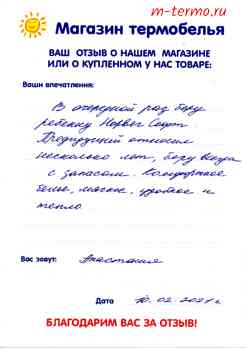 m-termo.ru
Магазин термобелья
ВАШ ОТЗЫВ О НАШЕМ МАГАЗИНЕ
ИЛИ О КУПЛЕННОМ У НАС ТОВАРЕ:
Ваши впечатления:
В очередной раз беру
ребенку Норвег Софт.
Предыдущий относили
несколько лет, беру всегда
с запасом. Комфортное
белье, мягкое, удобное и
тепло.
Вас зовут: Анастасия
Дата 10.02.2021 г
БЛАГОДАРИМ ВАС ЗА ОТЗЫВ!